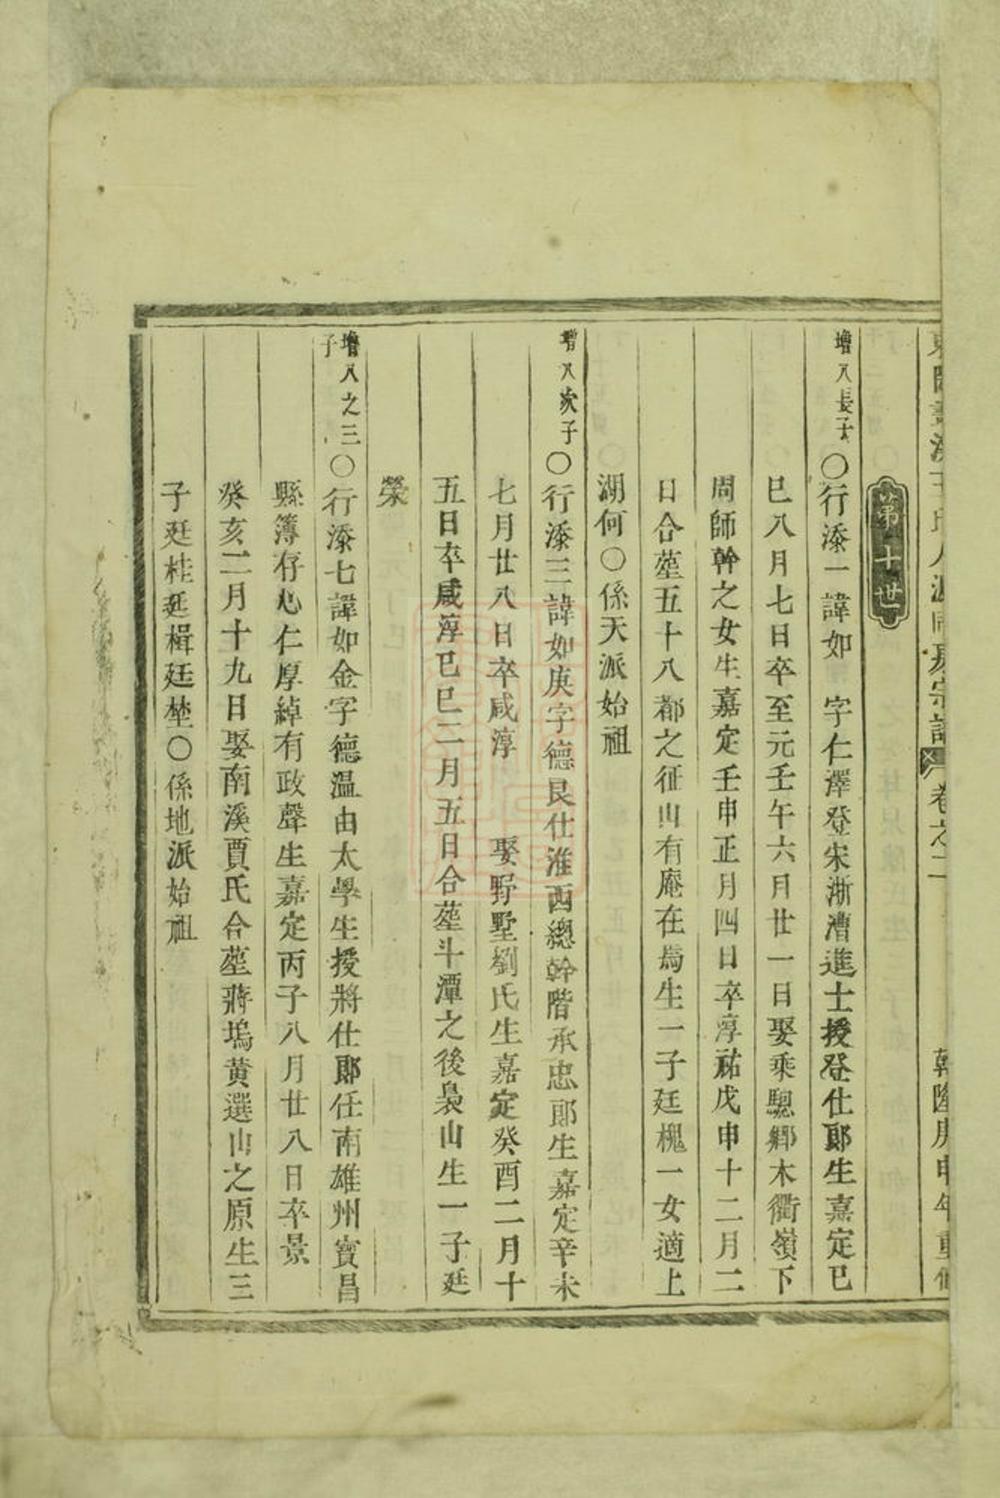 宗譜 卷之二 乾隆庚申年重修
第十世
增八長子○行漆一諱如 字仁澤登宋浙漕進士授登仕郎生嘉定已
巳八月七日卒至元壬午六月廿一日娶乘驄鄉木衢嶺下
周師幹之女生嘉定壬申正月四日卒淳祐戊申十二月二
日合塟五十八都之征山有庵在焉生一子廷槐一女適上
湖何○係天派始祖
增八次子○行漆三諱如庚字德艮仕淮西總幹階承忠郎生嘉定辛未
七月廿八日卒咸淳 娶野墅劉氏生嘉定癸酉二月十
五日卒咸淳已巳二月五日合塟斗潭之後裊山生一子廷
榮
增八之三子○行漆七諱如金字德温由太學生授將仕郎任南雄州寶昌
縣簿存心仁厚綽有政聲生嘉定丙子八月廿八日卒景
癸亥二月十九日娶南溪賈氏合塟蔣塢黄選山之原生三
子廷桂廷楫廷埜○係地派始祖